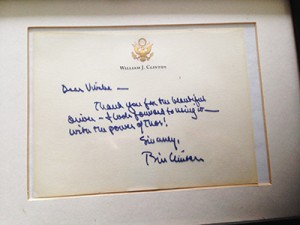 WILLIAM J. CLINTON
Dear
Thank you for the beautiful
driver — I look forward to using it —
with the power of Thor!
Sincerely,
Bill Clinton